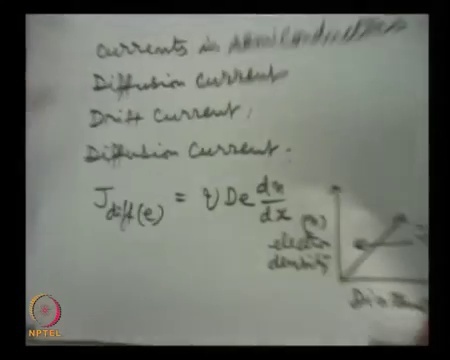 Currents in
Diffusion Current
Drift Current,
Diffusion Current.
J diff(e) = q De dn/dx
(n)
electron
density
NPTEL